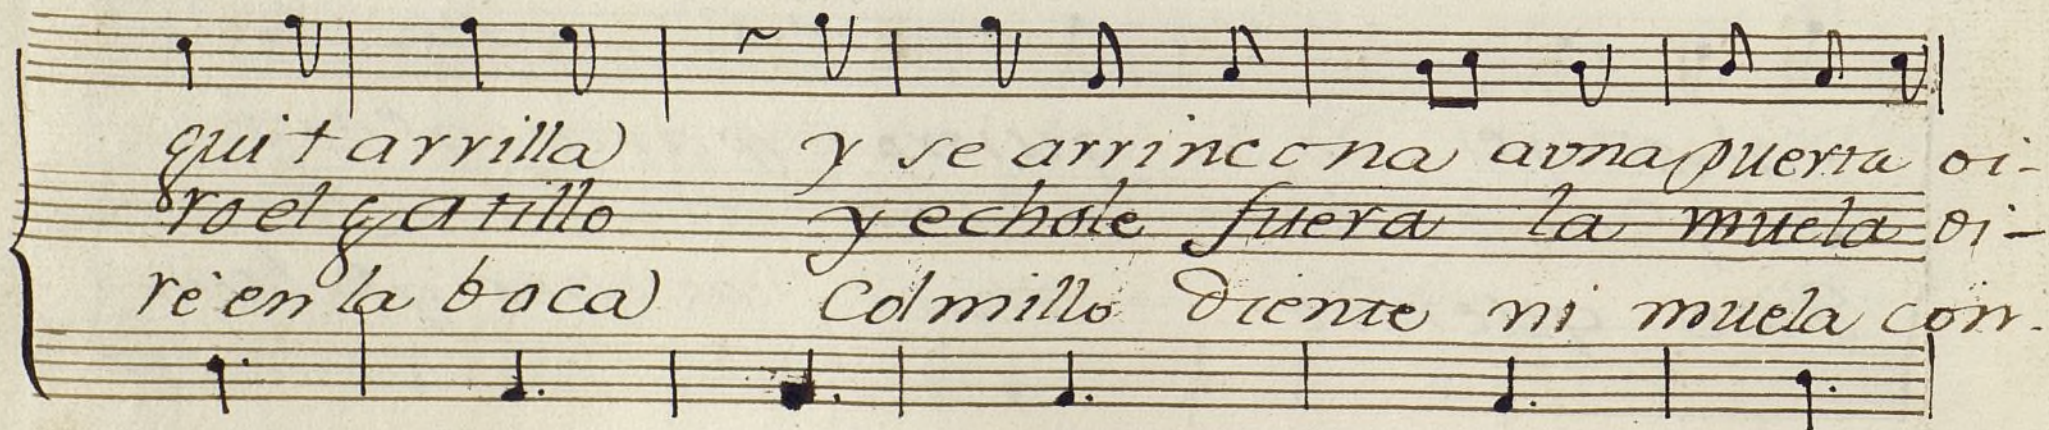 guitarrilla y se arrincona a vna puerta oi-
ro el gatillo y echole fuera la muela oi-
re en la boca Colmillo diente ni muela con-